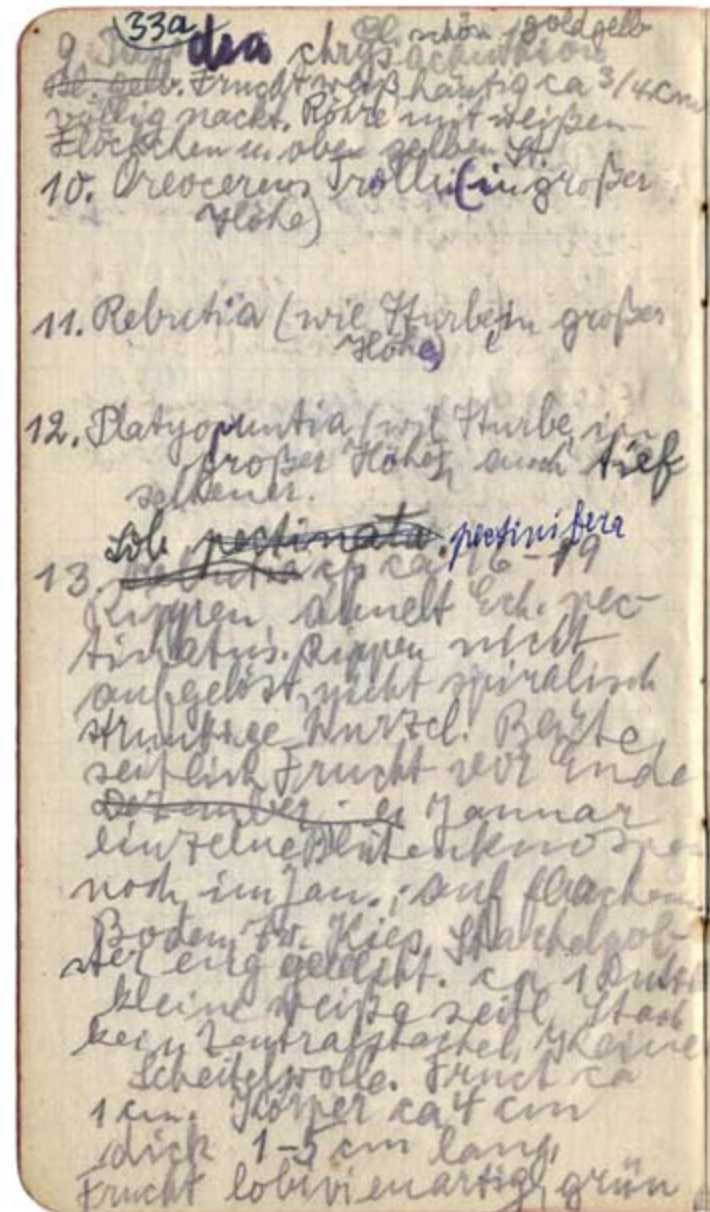 33a
Bl. schön goldgelb
9. dea chrysacanthion
Bl. gelb. Frucht weißhäutig ca 3/4 cm
völlig nackt. Röhre mit weißen
Flöckchen u. oben gelben St.
10. Oreocereus Trollii (in großer
Höhe)
11. Rebutia (wie Iturbe in großer
Höhe)
12. Platyopuntia (wie Iturbe in
großer Höhe), auch tief
seltener.
Lob. pectinata. pectinifera
13. Rebutia sp ca 16-19
Rippen ähnelt Ech. pec-
tinatus. Rippen nicht
aufgelöst, nicht spiralisch
Wurzel. Blüte
seitlich Frucht vor Ende
Dezember - Januar
einzelne Blütenknospen
noch im Jan.; auf flachem
Boden, zw. Kies. Stachelpol-
ster eng gereiht. ca 1 Dutz
kleine weiße seitl. Stach
kein Zentralstachel, keine
Scheitelwolle. Fruct ca
1 cm. Körper ca 4 cm
dick 1-5 cm lang.
Frucht lobivienartig, grün